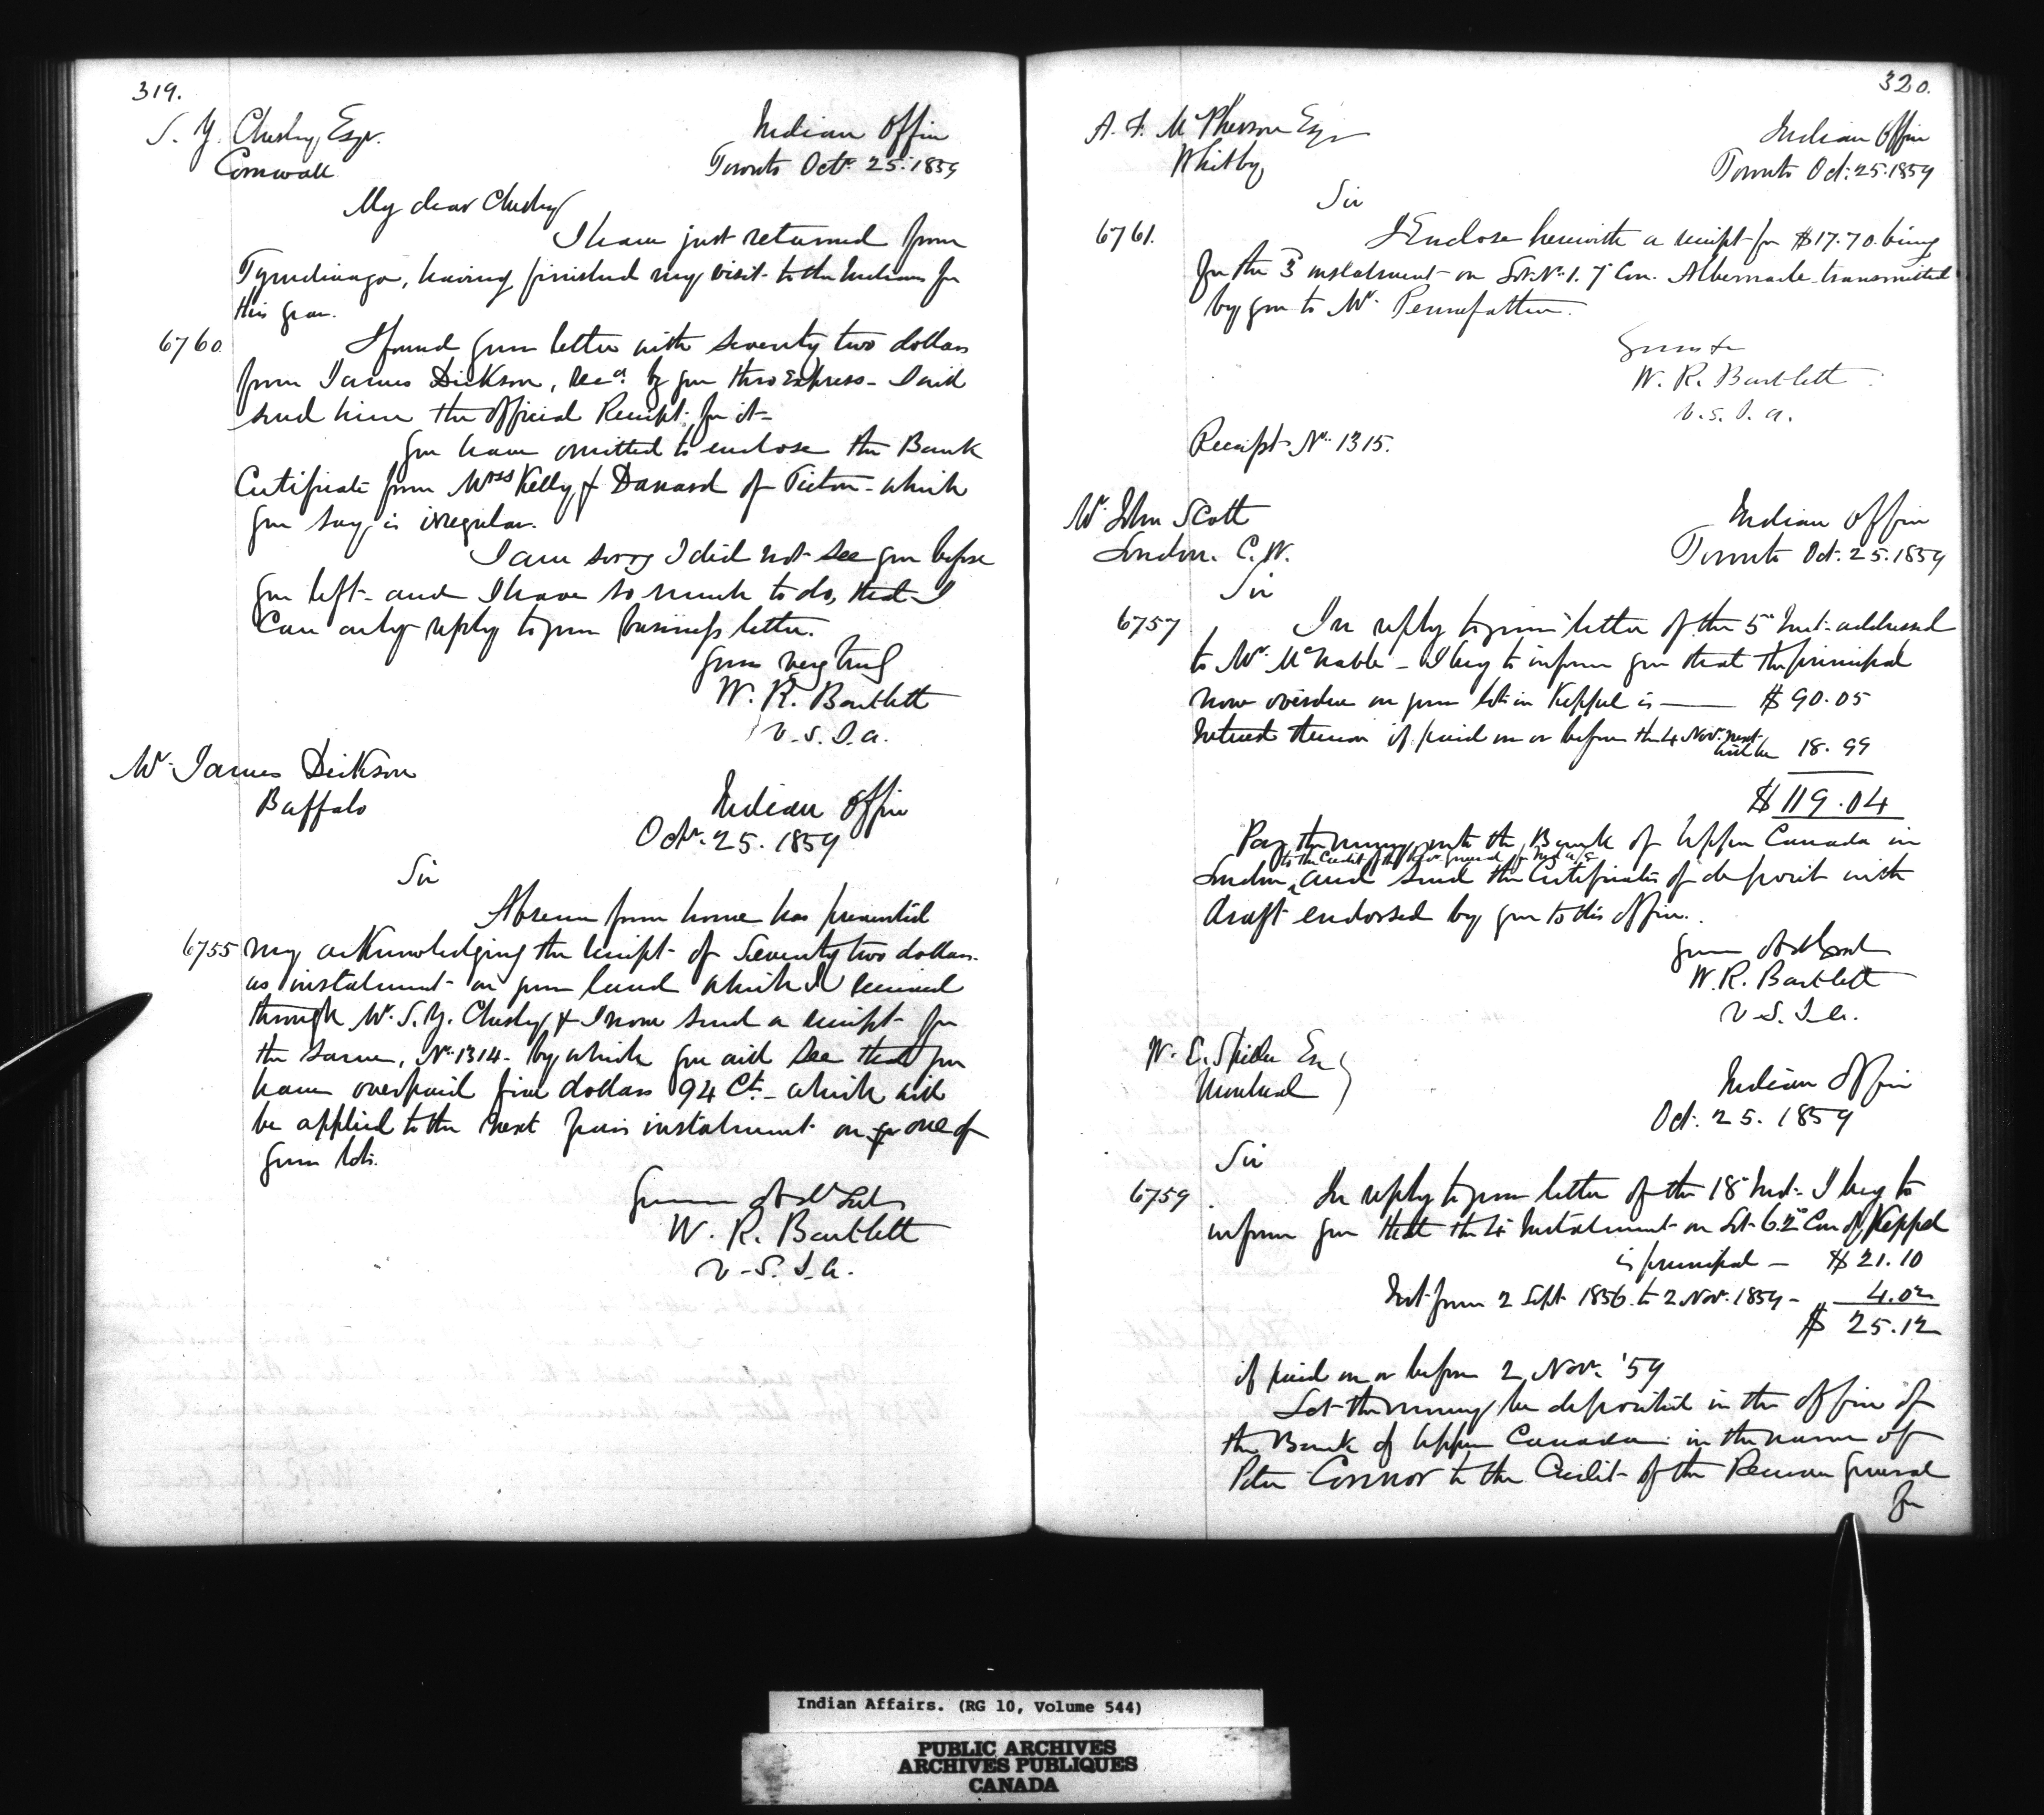 319.
S. Y. Chesley Esqr.
Cornwall
Indian Office
Toronto Octr. 25. 1859
My dear Chesley
I have just returned from
Tyendinaga, having finished my visit to the Indians for
this year.
6760 I found your letter with seventy two dollars
from James Dickson, recd. by you thro Express - I will
send him the official Receipt for it -
You have omitted to enclose the Bank
Certificate from Mess Kelly & of Picton - which
you say is irregular.
I am sorry I did not see you before
you left - and I have so much to do, that I
Can only reply to your business letter.
Yours very truly
W. R. Bartlett
V.S.I.A.
Mr. James Dickson
Buffalo
Indian Office
Octr. 25. 1859
Sir
Absence from home has prevented
6755 my acknowledging the receipt of Seventy two dollars
as instalment on your land which I received
through Mr. S. Y. Chesley, & I now send a receipt for
the same, No. 1314 - by which you will see that you
have overpaid five dollars 94 Cts - which will
be applied to the next years instalment on yr one of
your lots.
Your Obdt Servt
W. R. Bartlett
V.S.I.A.
320.
A. F. McPherson Esqr
Whitby
Indian Office
Toronto Oct. 25. 1859
Sir
6761. I Enclose herewith a receipt for $17.70 being
for the 3d instalment on Lot No. 1. 7 Con. Albemarle transmitted
by you to Mr. Pennefather.
Yours &c
W. R. Bartlett
V.S.I.A.
Receipt No. 1315.
Mr. John Scott
London. C.W.
Indian Office
Toronto Oct. 25. 1859
Sir
6757 In reply to your letter of the 5th Inst. addressed
to Mr. McNabb - I beg to inform you that the principal
now overdue on your lot in Keppel is — $ 90.05
Interest thereon if paid on or before the 4 Nov. next
will be 18.99
$ 119.04
Pay the money into the Bank of Upper Canada in
to the Credit of the Recr General for Ind a/c
London, and send the Certificates of deposit with
draft endorsed by you to this office.
Your Obdt Servt
W. R. Bartlett
V.S.I.A.
W. E. Esq
Montreal
Indian Office
Oct. 25. 1859
Sir
6759 In reply to your letter of the 18th Inst. I beg to
inform you that the 4th Instalment on Lot 6. 2d Con of Keppel
is principal — $ 21.10
Int from 2 Sept. 1856 to 2 Nov. 1859 - " 4.02
$ 25.12
if paid on or before 2 Nov. '59
Let the money be deposited in the office of
the Bank of Upper Canada in the name of
Peter Connor to the Credit of the Receiver General
for
Indian Affairs. (RG 10, Volume 544)
PUBLIC ARCHIVES
ARCHIVES PUBLIQUES
CANADA